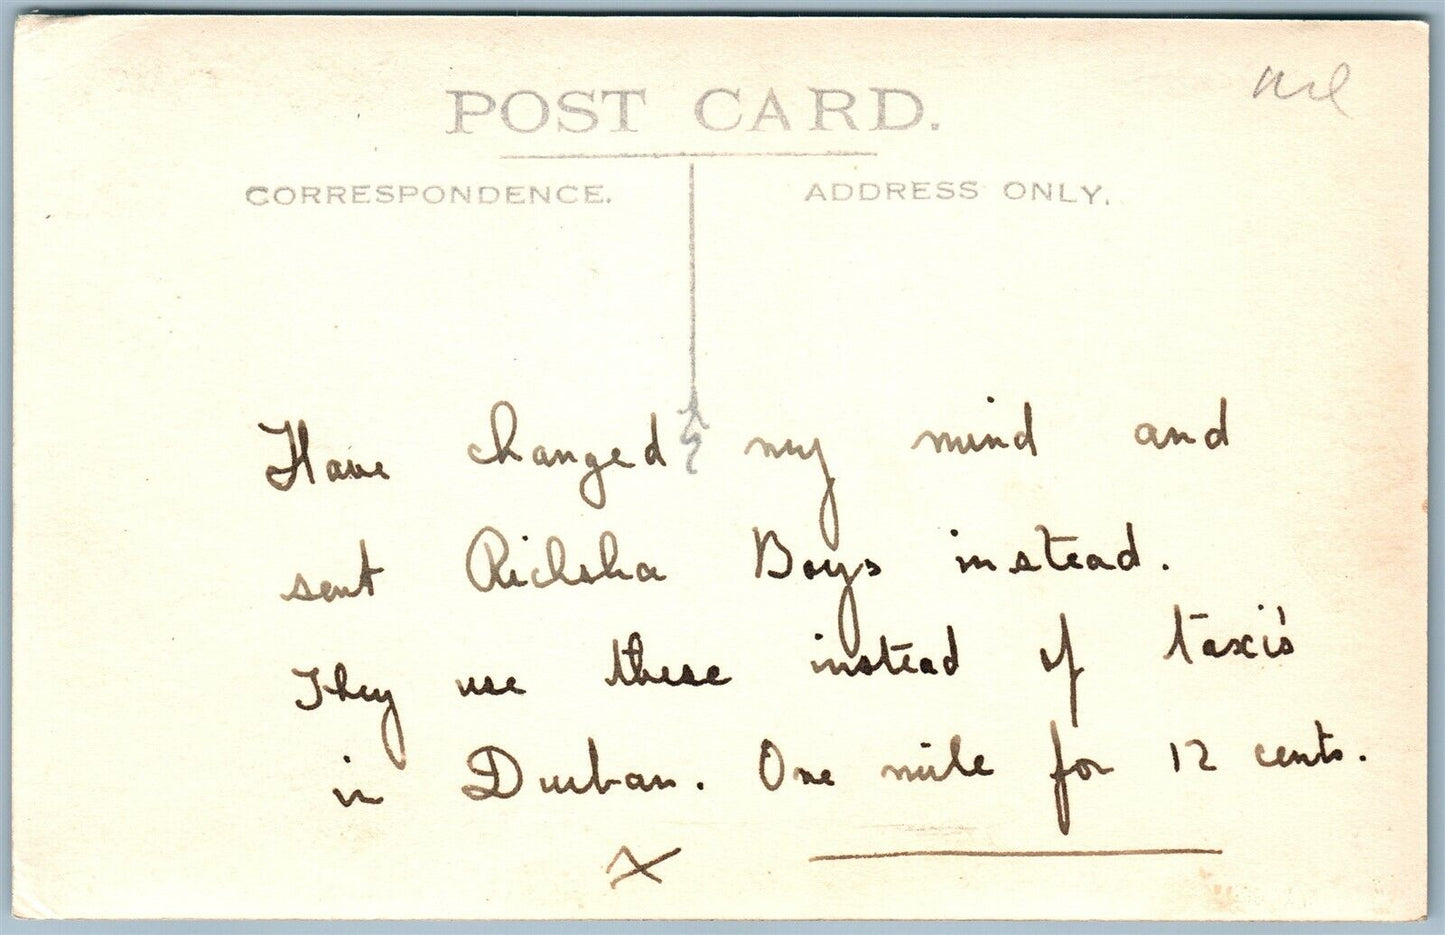 POST CARD.
CORRESPONDENCE.
ADDRESS ONLY.
Have changed my mind and
sent Ricksha Boys instead.
They use these instead of taxi's
in Durban. One mile for 12 cents.
x